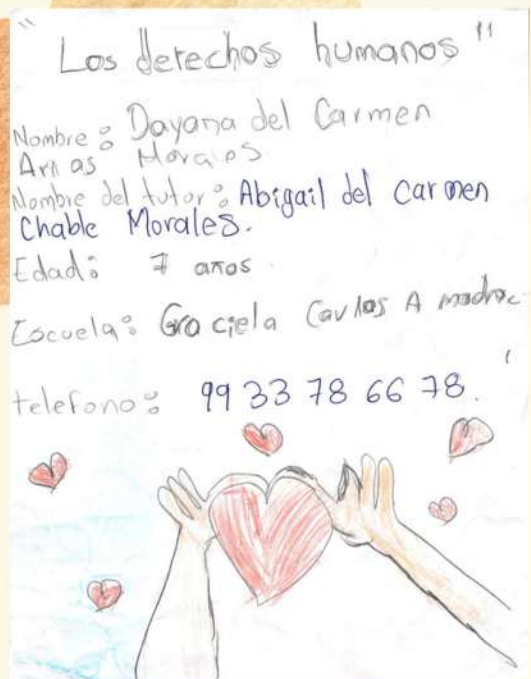 "Los derechos humanos"
Nombre: Dayana del Carmen
Arias Morales
Nombre del tutor: Abigail del Carmen
Chable Morales.
Edad: 7 años.
Escuela: Graciela
telefono: 99 33 78 66 78.